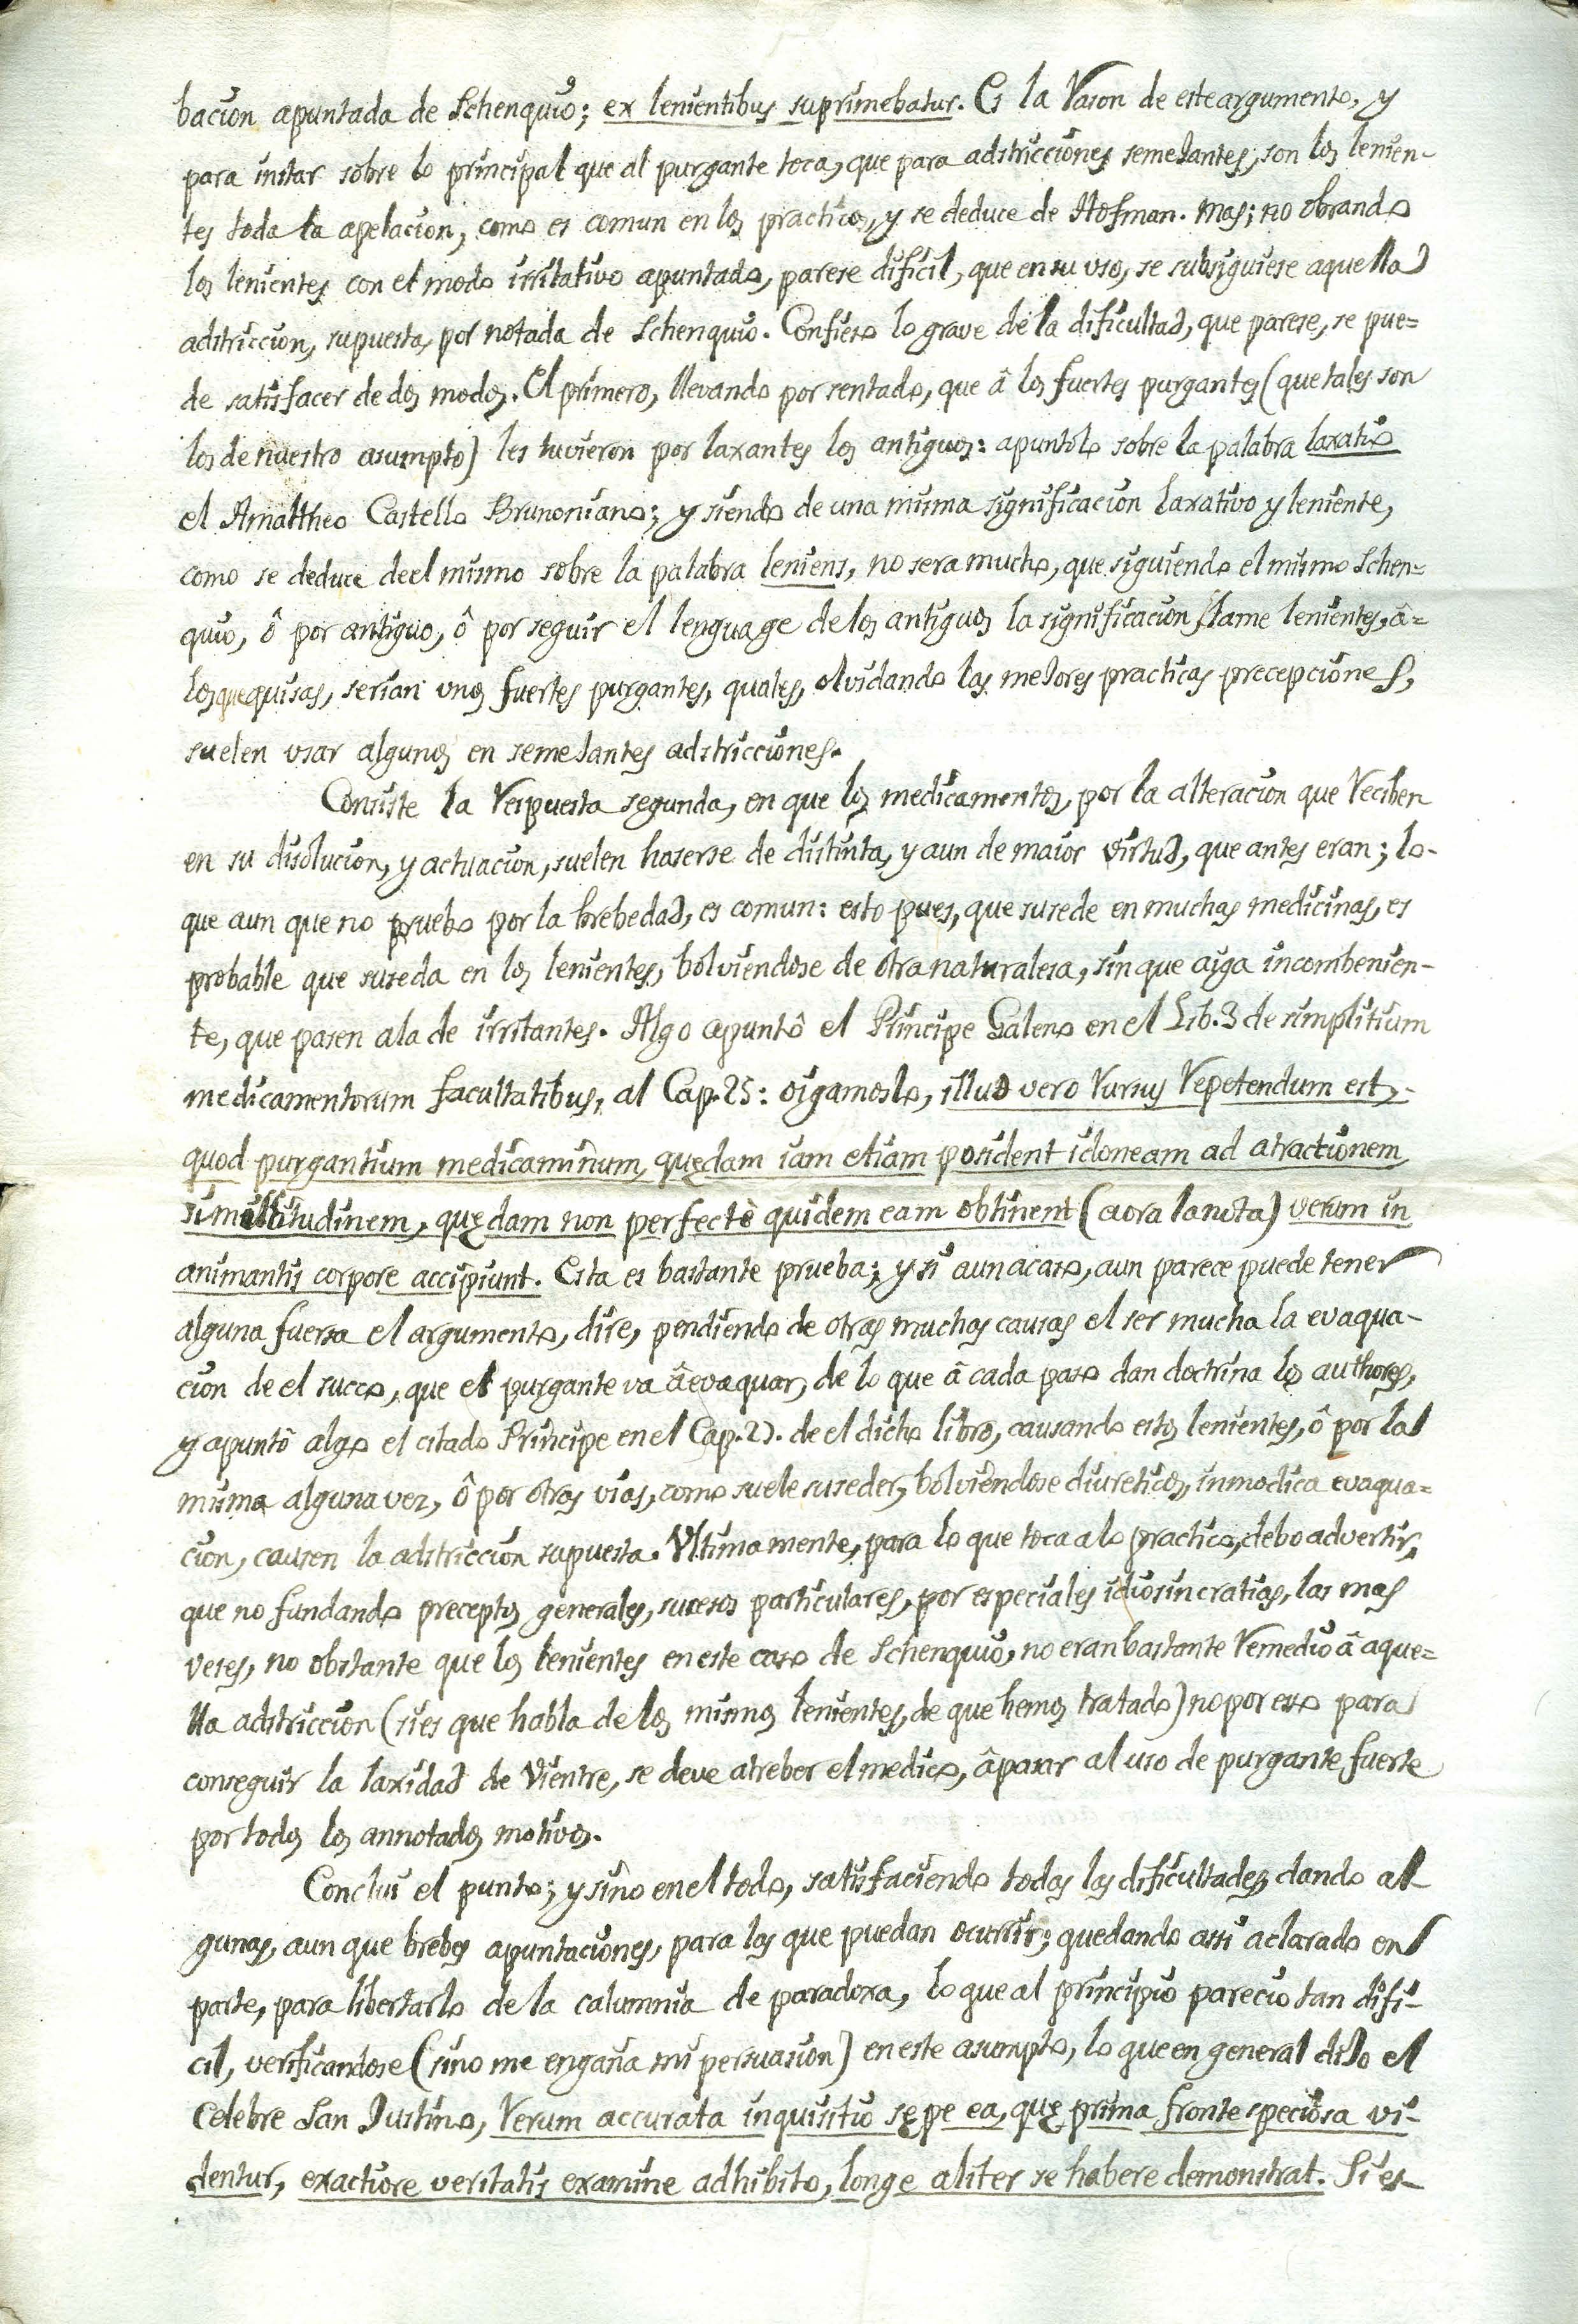 bacion apuntada de Schenquio; ex lenientibus suprimebatur. Es la rason de este argumento, y
para instar sobre lo principal que al purgante toca, que para adstricciones semejantes, son los lenien-
tes toda la apelacion, como es comun en los practicos, y se deduce de Hofman. Mas; no obrando
los lenientes con el modo irritativo apuntado, parese dificil, que en su uso, se subsiguiese aquella
adstriccion, supuesta, por notada de Schenquio. Confieso lo grave de la dificultad, que parese, se pue=
de satisfacer de dos modos. El primero, llevando por sentado, que â los fuertes purgantes (que tales son
los de nuestro asumpto) les tuvieron por laxantes los antiguos: apuntolo sobre la palabra laxativo
el Amaltheo Castello Brunoniano; y siendo de una misma significacion laxativo y leniente,
como se deduce de el mismo sobre la palabra leniens, no sera mucho, que siguiendo el mismo Schen=
quio, ô por antiguo, ô por seguir el lenguage de los antiguos la significacion, llame lenientes, â=
los que quisas, serian unos fuertes purgantes, quales, olvidando las mejores practicas precepciones,
suelen usar algunos en semejantes adstricciones.
Consiste la respuesta segunda, en que los medicamentos, por la alteracion que reciben
en su disolucion, y actuacion, suelen haserse de distinta, y aun de maior virtud, que antes eran; lo-
que aun que no pruebo por la brebedad, es comun: esto pues, que susede en muchas medicinas, es
probable que suseda en los lenientes, bolviendose de otra naturalesa, sin que aiga incombenien-
te, que pasen a la de irritantes. Algo apuntô el Principe Galeno en el Lib. 3 de simplitium
medicamentorum facultatibus, al Cap. 25: oigamoslo, illud vero rursus repetendum est,
quod purgantium medicaminum, quędam iam etiam posident idoneam ad atractionem
similitudinem, quędam non perfectè quidem eam obtinent (aora la nota) verum in
animantis corpore accipiunt. Esta es bastante prueba; y si aun acaso, aun parece puede tener
alguna fuersa el argumento, dire, pendiendo de otras muchas causas el ser mucha la evaqua-
cion de el succo, que el purgante va â evaquar, de lo que â cada paso dan doctrina los authores,
y apuntô algo el citado Principe en el Cap. de el dicho libro, causando estos lenientes, ô por la
misma alguna vez, ô por otras vias, como suele suseder, bolviêndose diureticos, inmodica evaqua=
cion, causen la adstriccion supuesta. Ultimamente, para lo que toca a lo practico, debo advertir,
que no fundando preceptos generales, sucesos particulares, por especiales idiosincratias, las mas
veses, no obstante que los lenientes en este caso de Schenquio, no eran bastante remedio â aque=
lla adstriccion (si es que habla de los mismos lenientes, de que hemos tratado) no por eso para
conseguir la laxidad de vientre, se deve atreber el medico, â pasar al uso de purgante fuerte
por todos los annotados motivos.
Conclui el punto; y sino en el todo, satisfaciendo todas las dificultades, dando al
gunas, aun que brebes apuntaciones, para las que puedan ocurrir; quedando assi aclarado en
parte, para libertarlo de la calumnia de paradoxa, lo que al principio parecio tan difi-
cil, verificandose (sino me engaña mi persuasion) en este asumpto, lo que en general dijo el
celebre San Justino, Verum accurata inquisitio sępe ea, quę prima fronte speciosa vi-
dentur, exactiore veritatis examine adhibito, longe aliter se habere demonstrat. Si es-